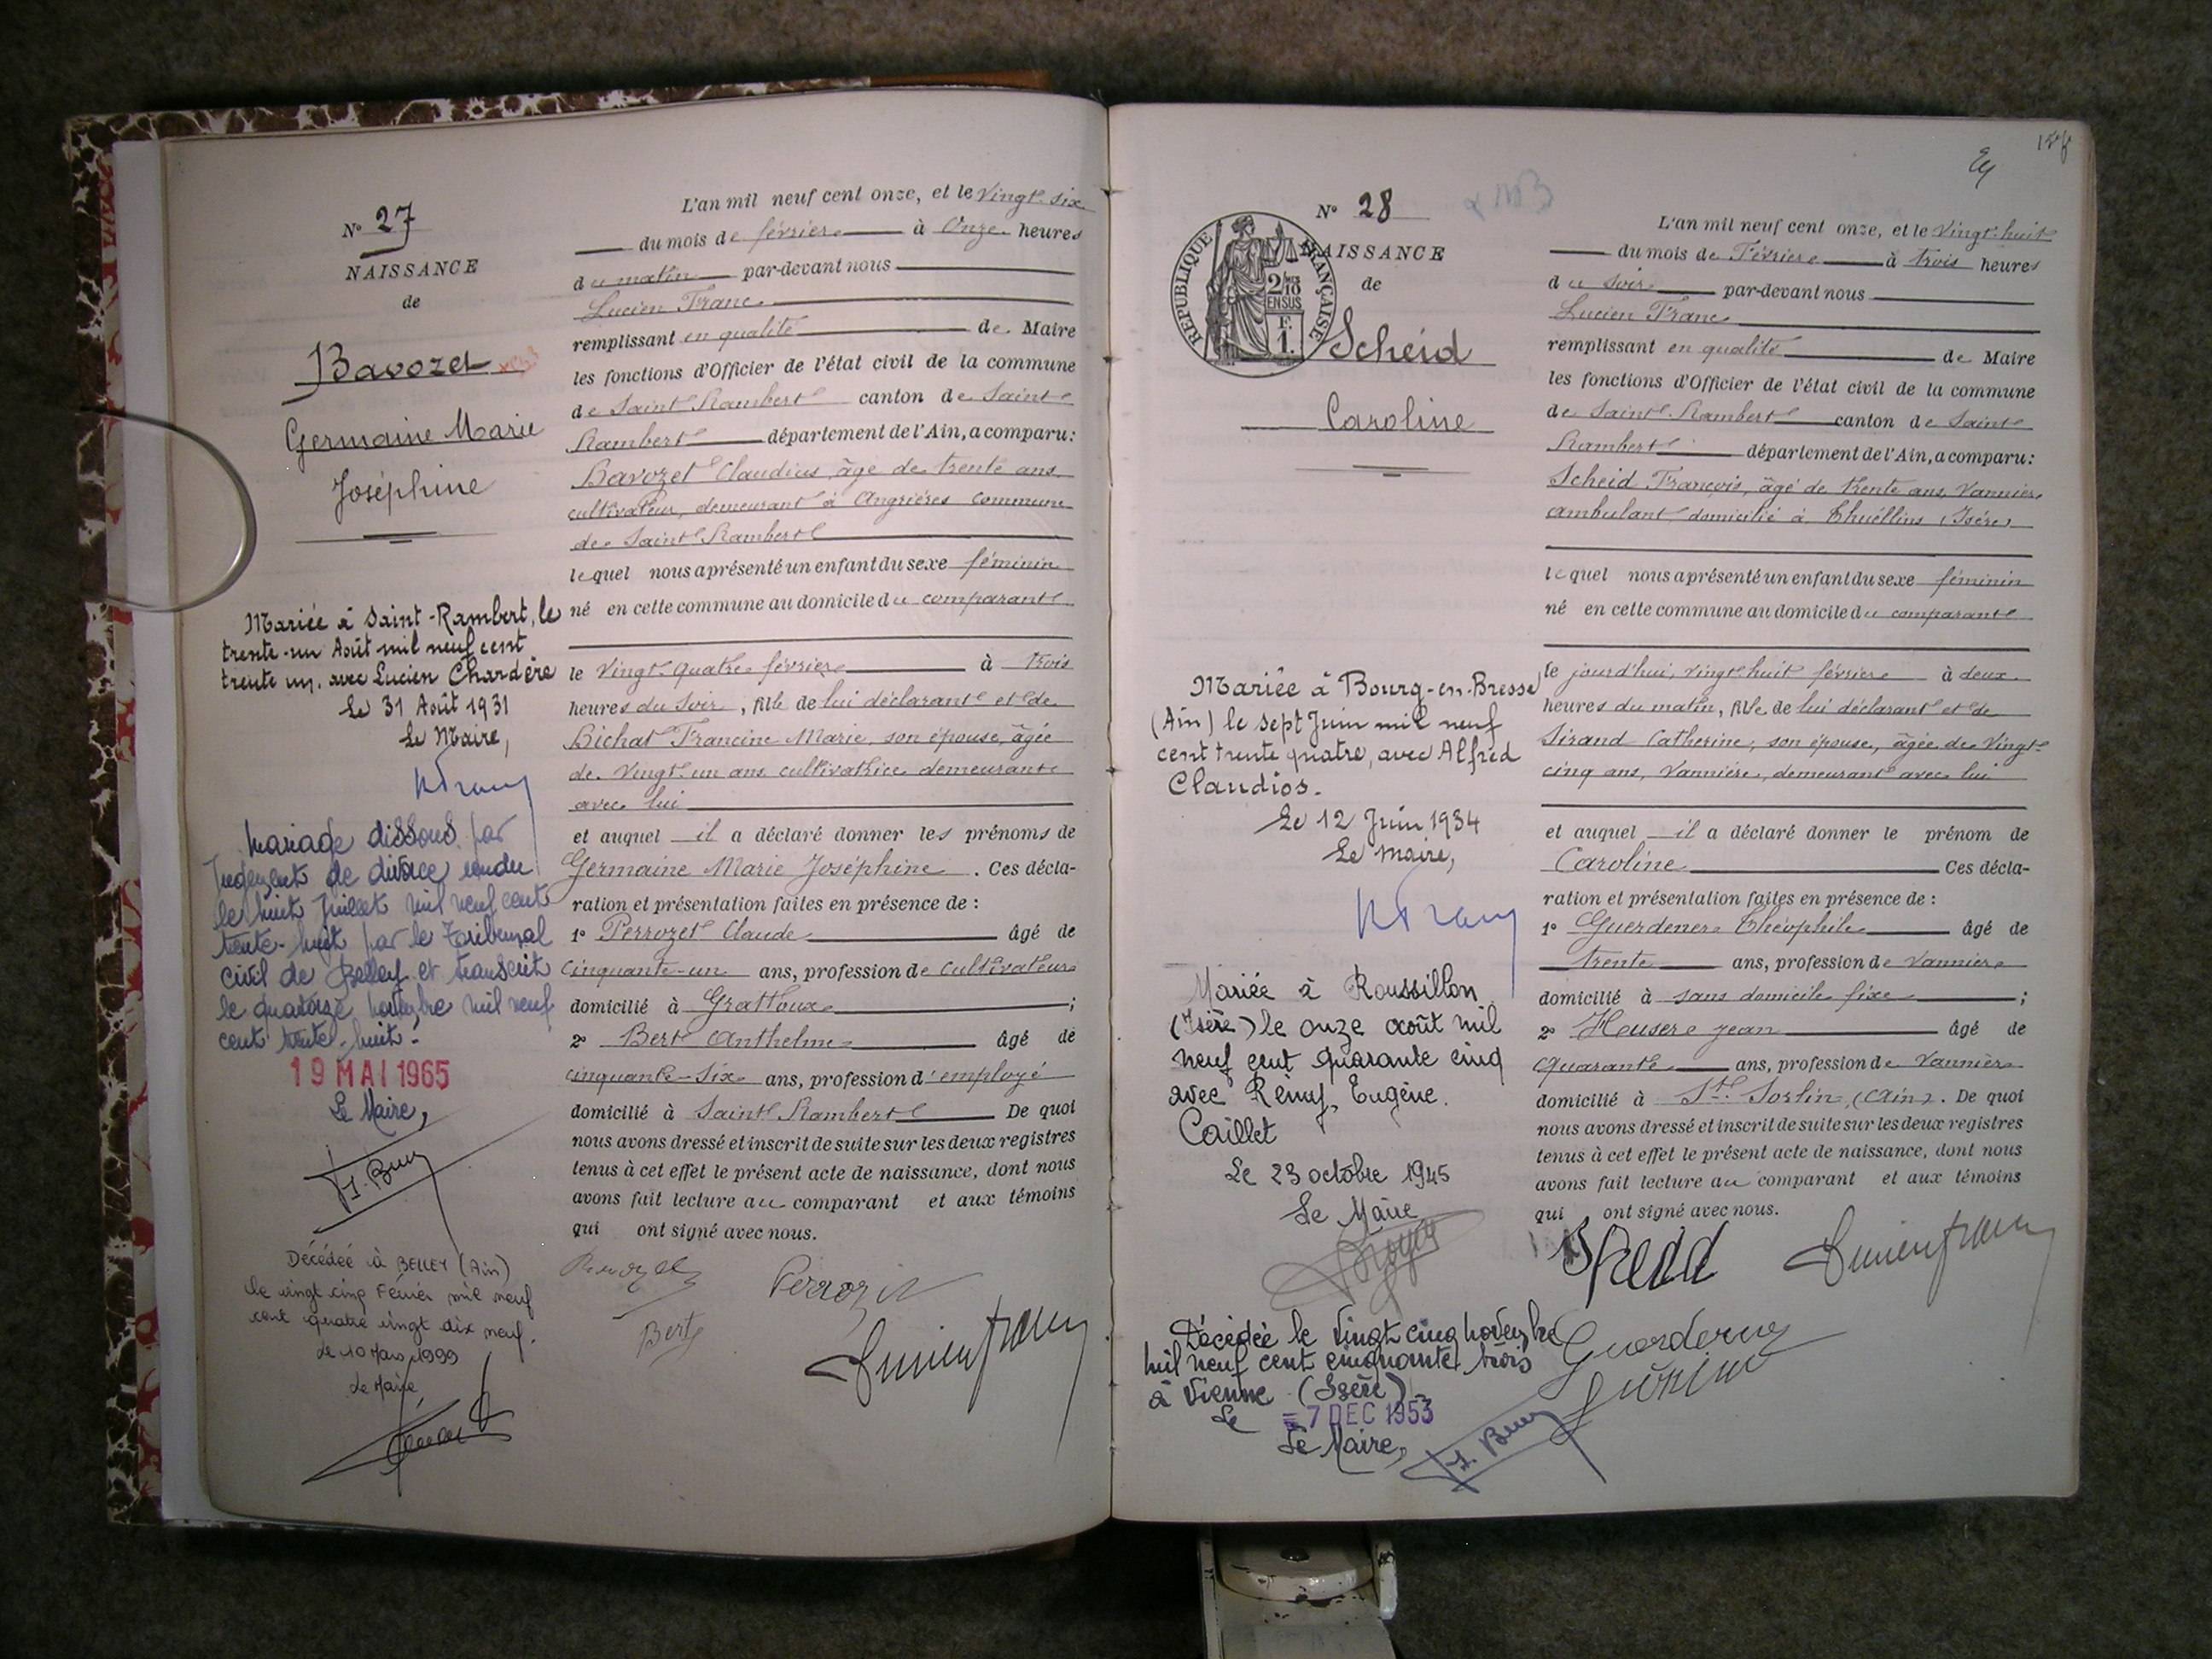 N° 27
NAISSANCE
de
Bavozet
Germaine Marie
Joséphine
Mariée à Saint-Rambert, le
trente-un Août mil neuf cent
trente un. avec Lucien Chardère
Le 31 Août 1931
Le Maire,
Mariage dissous par
Jugement de divorce rendu
le huit Juillet mil neuf cent
trente-huit par le Tribunal
civil de Belley et transcrit
le quatorze novembre mil neuf
cent trente-huit.
19 MAI 1965
Le Maire,
Décédée à BELLEY (Ain)
le vingt cinq Février mil neuf
cent quatre vingt dix neuf.
Le 10 Mars 1999
Le Maire
L'an mil neuf cent onze, et le Vingt-six
du mois de février à Onze heures
du matin par-devant nous
Lucien Franc
remplissant en qualité de Maire
les fonctions d'Officier de l'état civil de la commune
de Saint Rambert canton de Saint
Rambert département de l'Ain, a comparu:
Bavozet Claudius, âgé de trente ans
cultivateur, demeurant à Angrières commune
de Saint Rambert
lequel nous a présenté un enfant du sexe féminin
né en cette commune au domicile du comparant
le Vingt quatre février à trois
heures du soir, fille de lui déclarant et de
Bichat Francine Marie, son épouse, âgée
de vingt-un ans cultivatrice demeurant
avec lui
et auquel il a déclaré donner les prénoms de
Germaine Marie Joséphine. Ces décla-
ration et présentation faites en présence de :
1° Perrozet Claude âgé de
cinquante-un ans, profession de cultivateur
domicilié à Grattoux ;
2° Bert Anthelme âgé de
cinquante-six ans, profession d'employé
domicilié à Saint Rambert De quoi
nous avons dressé et inscrit de suite sur les deux registres
tenus à cet effet le présent acte de naissance, dont nous
avons fait lecture au comparant et aux témoins
qui ont signé avec nous.
Bavozet
Perrozet
Bert
Lucien Franc
N° 28
NAISSANCE
de
RÉPUBLIQUE FRANÇAISE
2/10 EN SUS
F. 1.
Scheid
Caroline
Mariée à Bourg-en-Bresse
(Ain) le sept Juin mil neuf
cent trente quatre, avec Alfred
Claudios.
Le 12 Juin 1934
Le Maire,
Mariée à Roussillon
(Isère) le onze août mil
neuf cent quarante cinq
avec Rémy, Eugène.
Caillet
Le 23 octobre 1945
Le Maire
Décédée le vingt cinq novembre
mil neuf cent cinquante trois
à Vienne (Isère)
Le = 7 DEC 1953
Le Maire,
L'an mil neuf cent onze, et le Vingt-huit
du mois de Février à trois heures
du soir par-devant nous
Lucien Franc
remplissant en qualité de Maire
les fonctions d'Officier de l'état civil de la commune
de Saint-Rambert canton de Saint
Rambert département de l'Ain, a comparu:
Scheid François, âgé de trente ans, Vannier
ambulant, domicilié à Thuéllins (Isère)
lequel nous a présenté un enfant du sexe féminin
né en cette commune au domicile du comparant
le jourd'hui, vingt-huit février à deux
heures du matin, fille de lui déclarant et de
Sirand Catherine, son épouse, âgée de Vingt-
cinq ans, Vannière, demeurant avec lui
et auquel il a déclaré donner le prénom de
Caroline Ces décla-
ration et présentation faites en présence de :
1° Guerdener Théophile âgé de
trente ans, profession de vannier
domicilié à sans domicile fixe ;
2° Heuser Jean âgé de
quarante ans, profession de vannier
domicilié à St. Sorlin, (Ain). De quoi
nous avons dressé et inscrit de suite sur les deux registres
tenus à cet effet le présent acte de naissance, dont nous
avons fait lecture au comparant et aux témoins
qui ont signé avec nous.
Lucien Franc